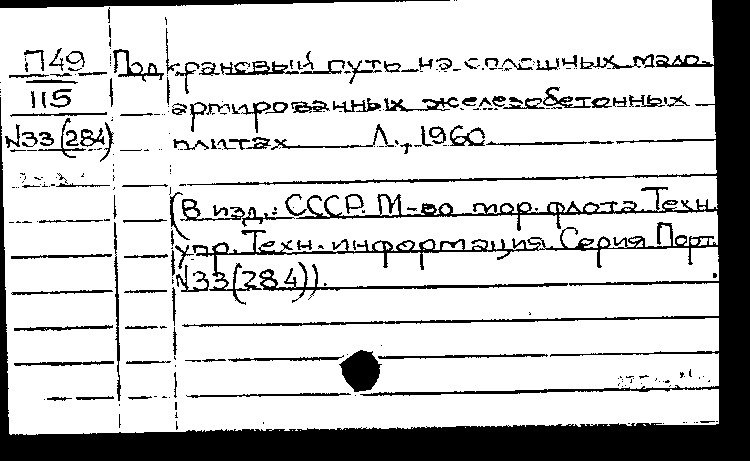 П49
115
N33(284)
Подкрановый путь на сплошных мало-
артированных железобетонных
плитах Л., 1960.
(В изд.: СССР. М-во мор. флота. Техн.
упр. Техн. информация. Серия Порт.
N33(284)).